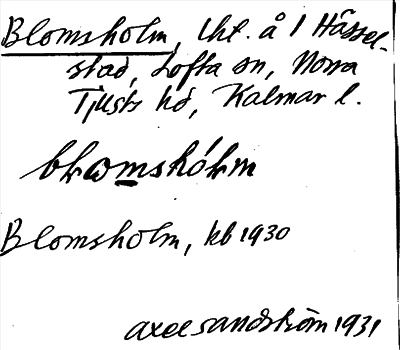 Blomsholm, lht. å 1 Hässel-
stad, Lofta sn, Norra
Tjusts hd, Kalmar l.
bḷωmshóḷm
Blomsholm, kb 1930
Axel Sandström 1931